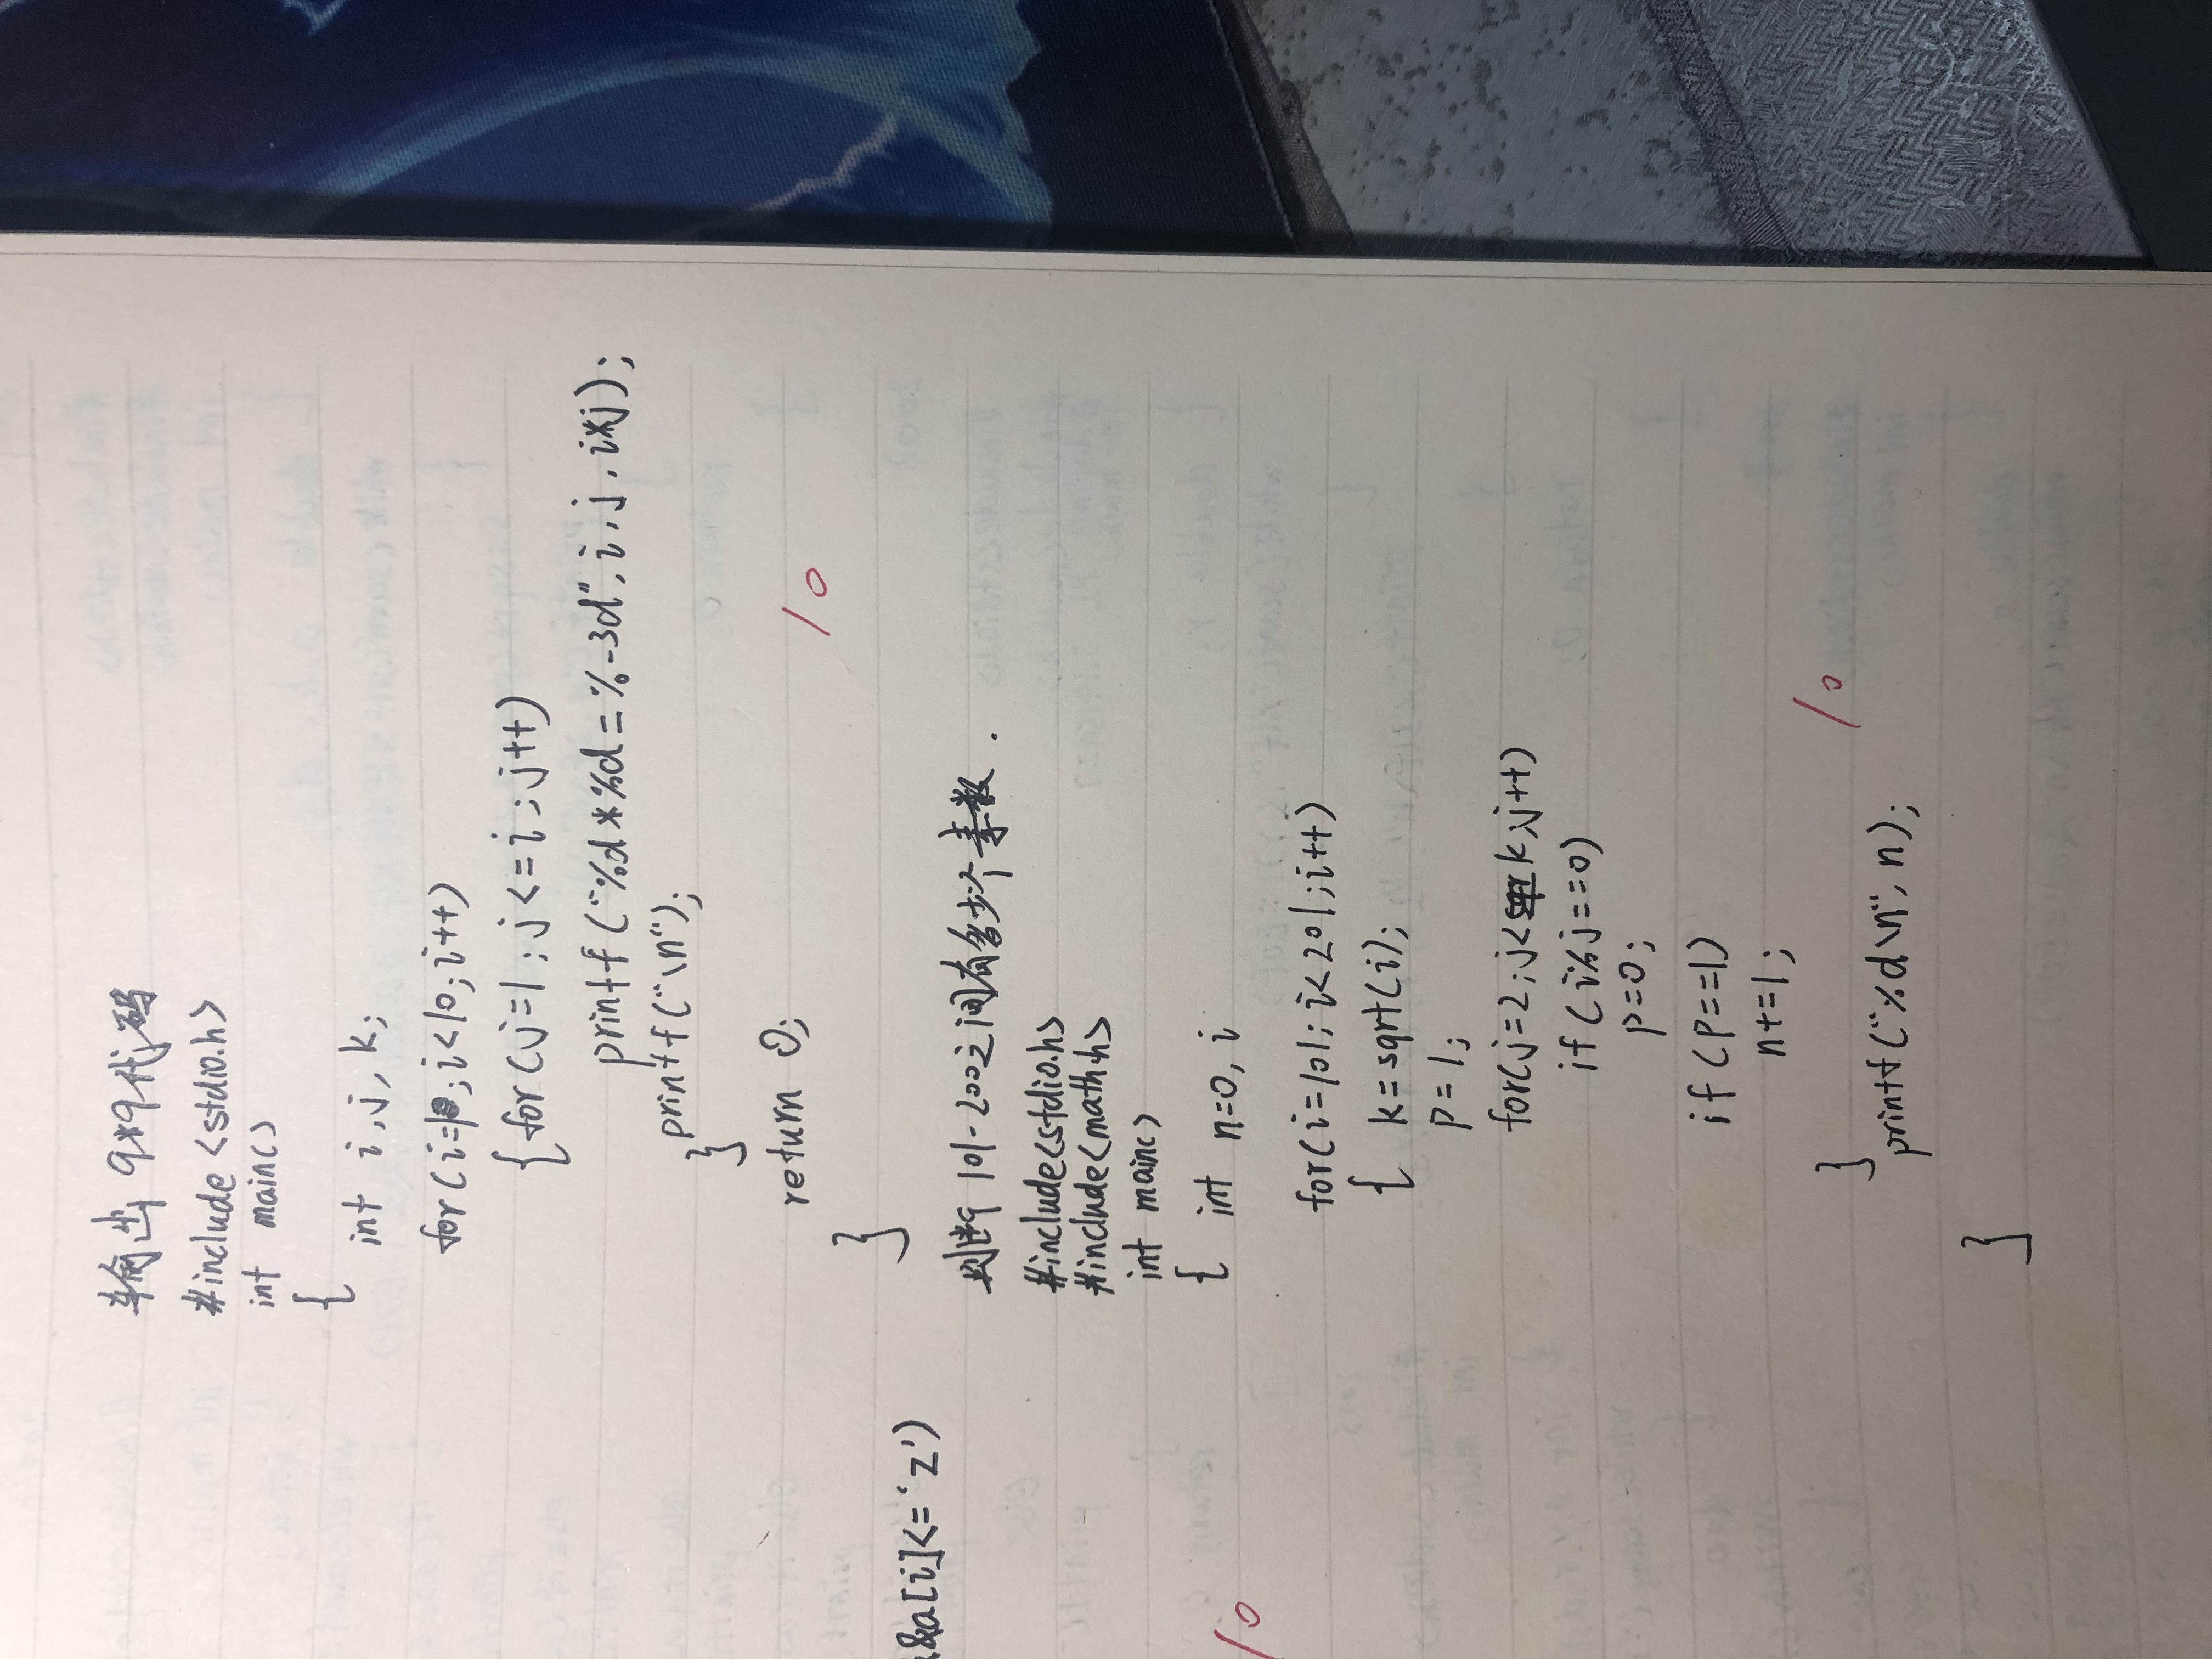 输出9*9代码
#include <stdio.h>
int main()
{
int i,j,k;
for(i=1;i<10;i++)
{for(j=1;j<=i;j++)
printf("%d*%d=%-3d",i,j,i*j);
printf("\n");
}
return 0;
10
}
判断101-200之间有多少个素数.
#include<stdio.h>
#include<math.h>
int main()
{ int n=0,i
for(i=101;i<201;i++)
{ k=sqrt(i);
p=1;
for(j=2;j<k;j++)
if(i%j==0)
p=0;
if(p==1)
n+=1;
10
}
printf("%d\n",n);
}
&a[i]<='z')
10